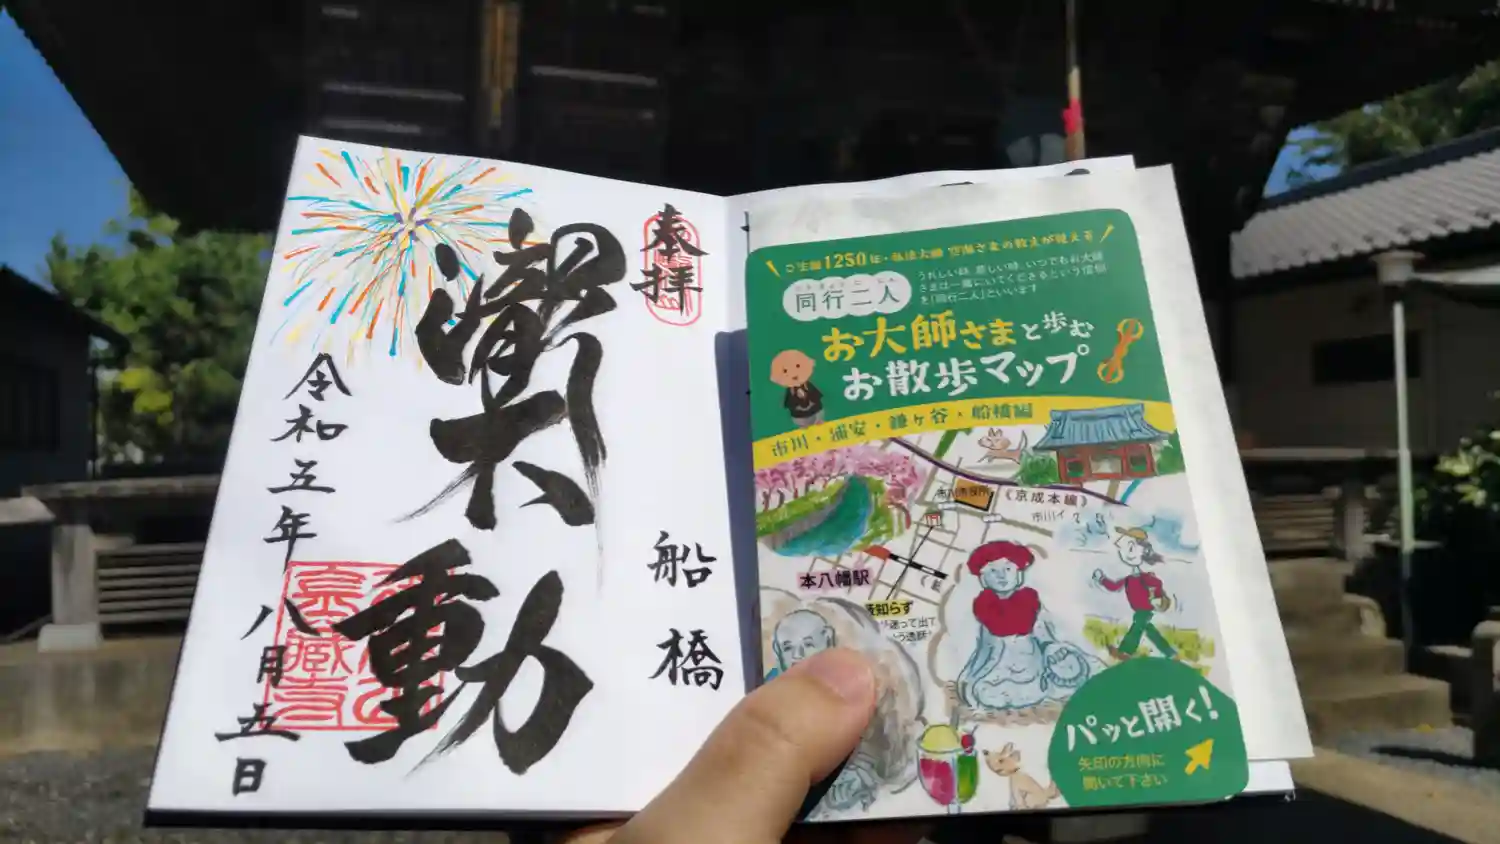 奉拝
船橋
不動
令和五年八月五日
ご生誕1250年・弘法大師 空海さまの教えが覚える
同行二人
うれしい時、悲しい時、いつでもお大師
さまは一緒にいてくださるという信仰
を「同行二人」といいます
お大師さまと歩む
お散歩マップ
市川・浦安・鎌ヶ谷・船橋編
市川市役所
(京成本線)
市川イ
本八幡駅
藪知らず
迷って出て
パッと開く!
矢印の方向に
開いて下さい